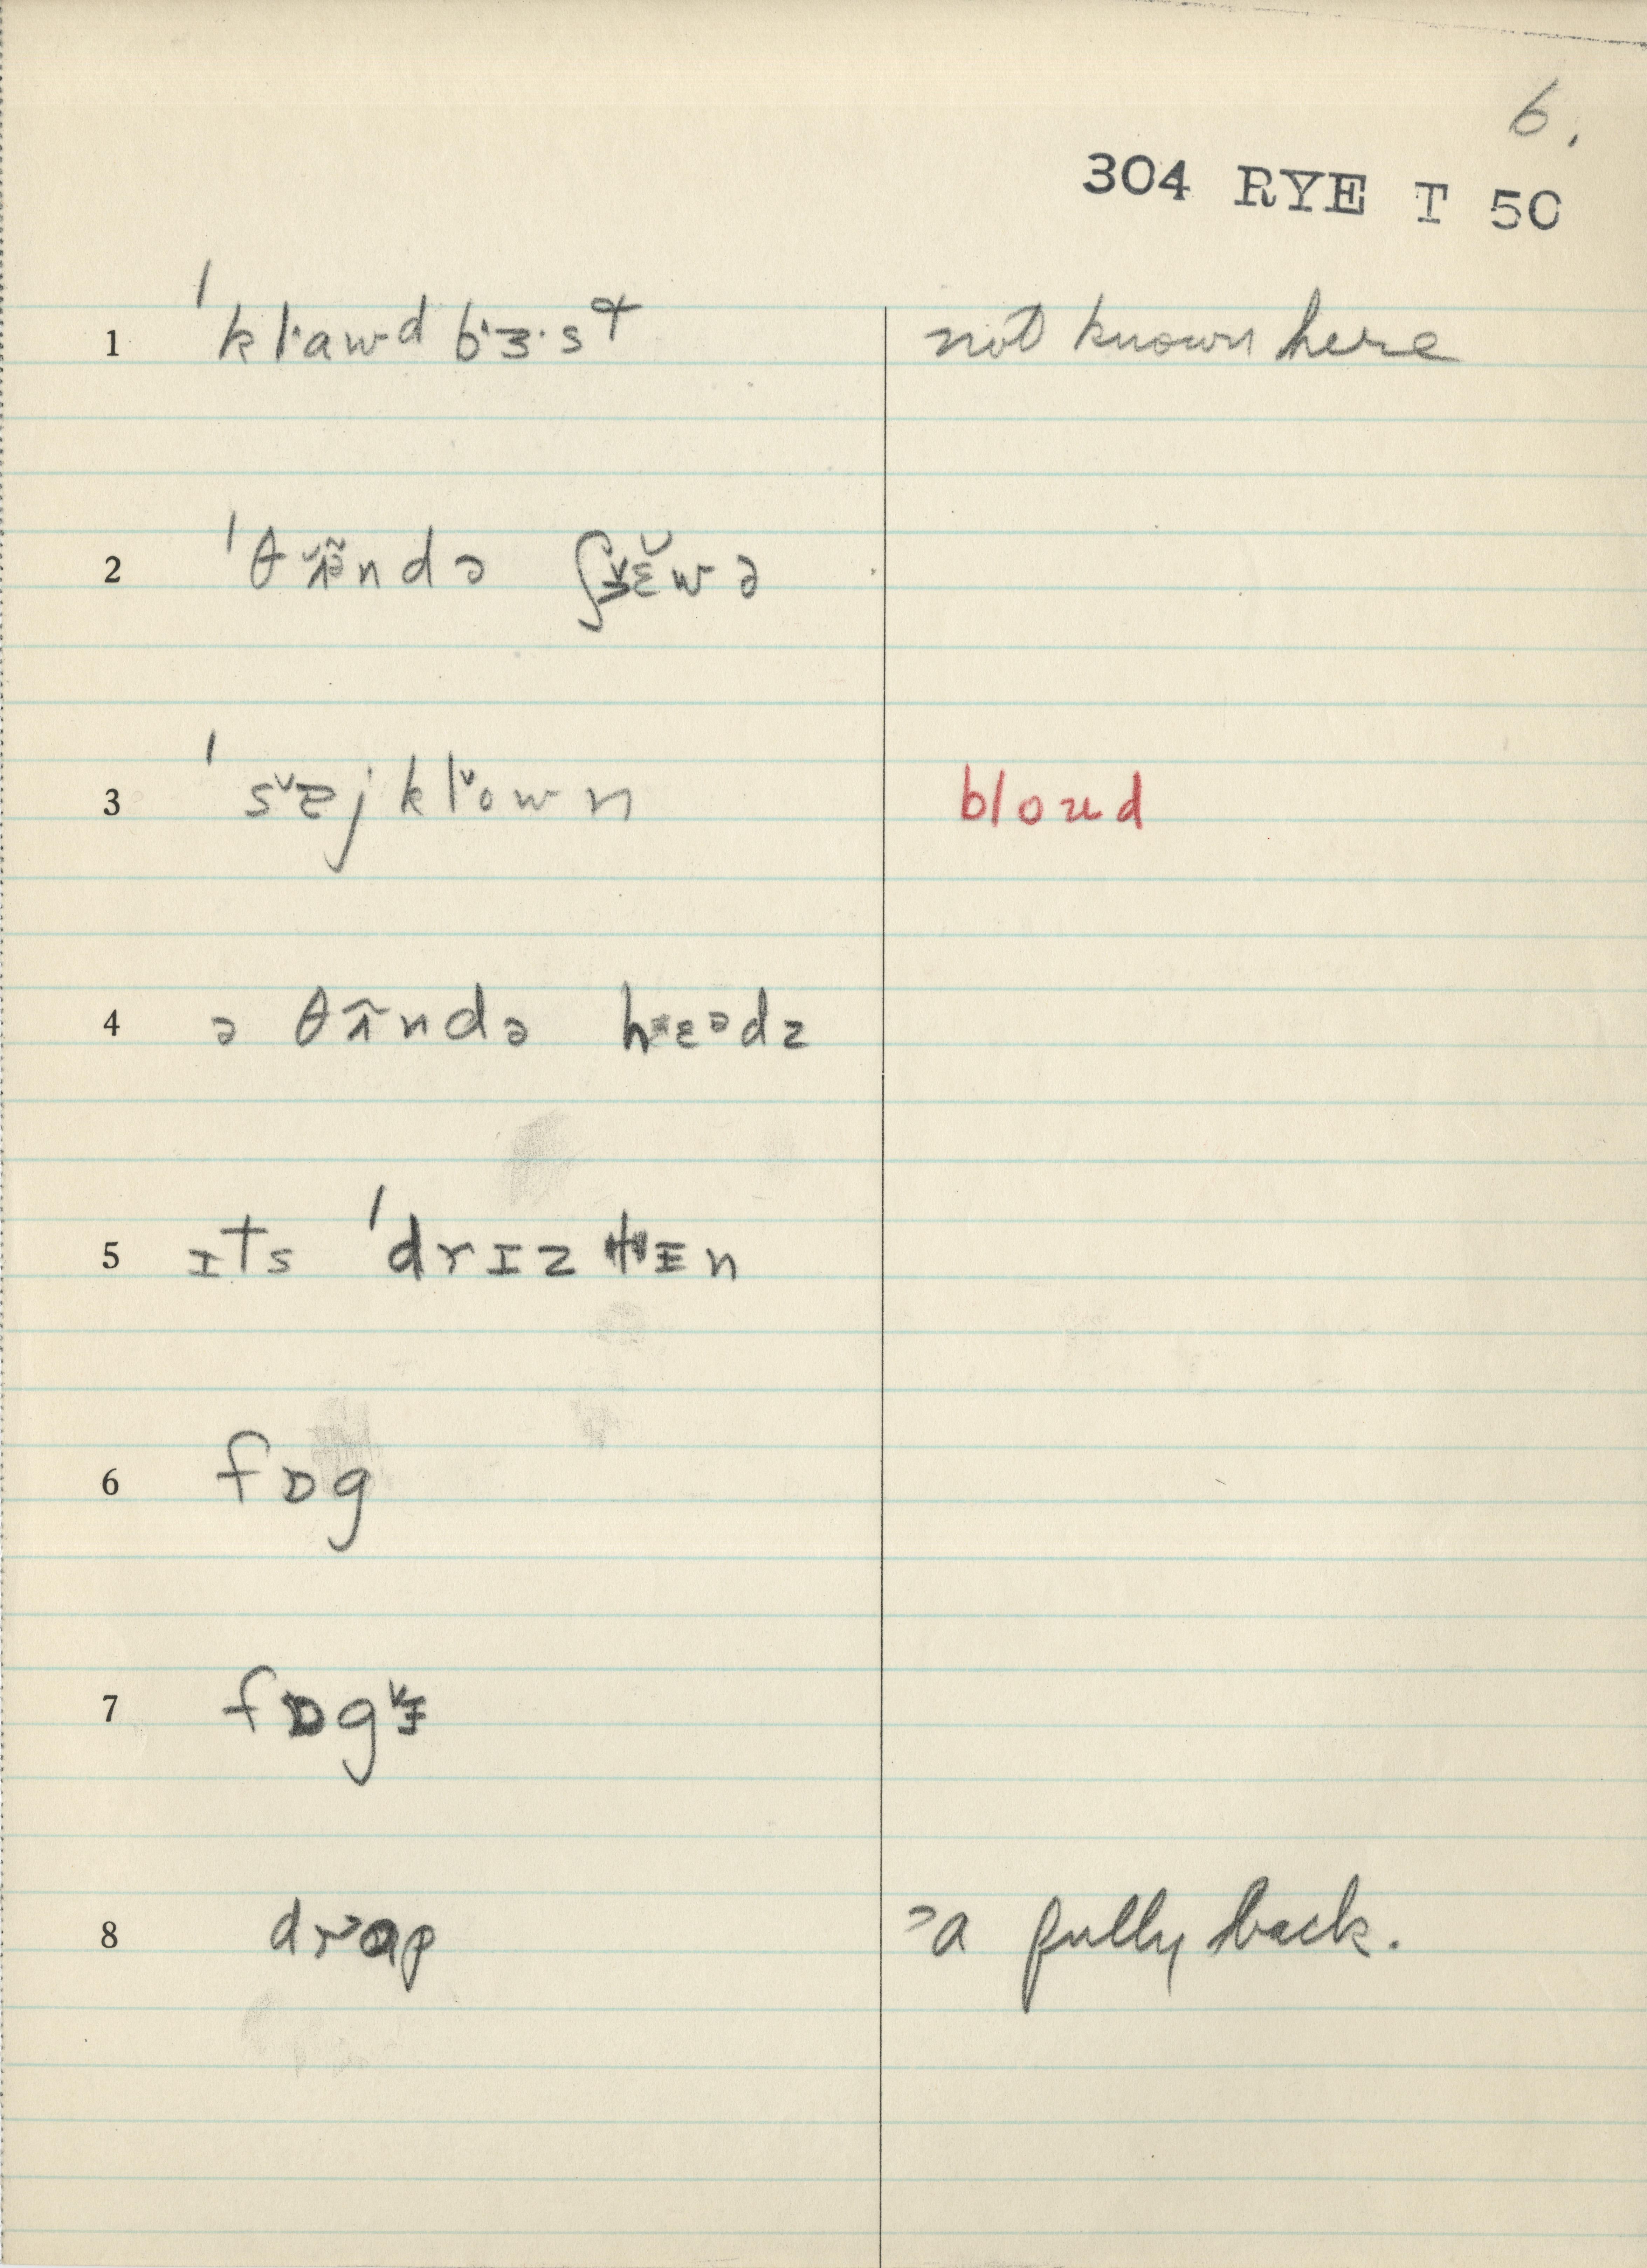 6.
304 RYE T 50
1 ˈklawd bɜ·st not known here
2 ˈθʌ̃ndə ʃɛwə
3 ˈsejklown bloud
4 ə θʌ̃ndə hɛədz
5 ɪts ˈdrɪzlɪn
6 fɒg
7 fɒgɪ
8 drɑp =a fully back.